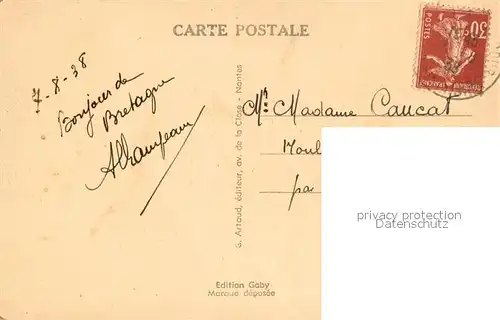 CARTE POSTALE
30
POSTES
7-8-38
Bonjour de
Bretagne
G. Artaud, éditeur, av. de la Close - Nantes
Mr. Madame Caucat
Moul
par
privacy protection
ansichtskartenversand.com
Edition Gaby
Marque déposée